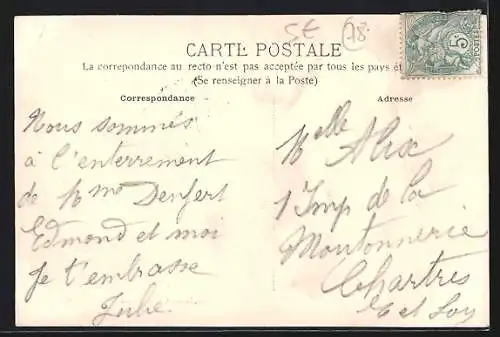 5 E 28
CARTE POSTALE
La correpondance au recto n'est pas acceptée par tous les pays ét
(Se renseigner à la Poste)
Correspondance
Nous sommes
à l'enterrement
de Mme Denfert
Edmond et moi
Je t'embrasse
Julie.
Adresse
Melle Alix
1 Imp de la
Moutonnerie
Chartres
E et Loir
5c